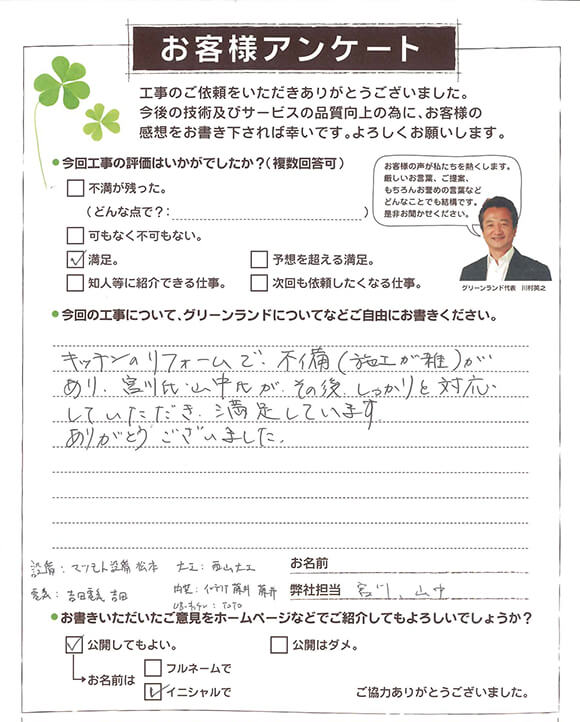 お客様アンケート
工事のご依頼をいただきありがとうございました。
今後の技術及びサービスの品質向上の為に、お客様の
感想をお書き下されば幸いです。よろしくお願いします。
今回工事の評価はいかがでしたか?(複数回答可)
不満が残った。
(どんな点で?: )
可もなく不可もない。
満足。
予想を超える満足。
知人等に紹介できる仕事。
次回も依頼したくなる仕事。
お客様の声が私たちを熱くします。
厳しいお言葉、ご提案、
もちろんお誉めの言葉など
どんなことでも結構です。
是非お聞かせください。
グリーンランド代表 川村英之
今回の工事について、グリーンランドについてなどご自由にお書きください。
キッチンのリフォームで、不備(施工が雑)が
あり、宮川氏・山中氏が、その後、しっかりと対応
していただき、満足しています。
ありがとうございました。
設備:マツモト設備 松本
大工:西山大工
電気:吉田電気 吉田
内装: 藤井
: TOTO
お名前
弊社担当 宮川、山中
お書きいただいたご意見をホームページなどでご紹介してもよろしいでしょうか?
公開してもよい。
公開はダメ。
お名前は
フルネームで
イニシャルで
ご協力ありがとうございました。